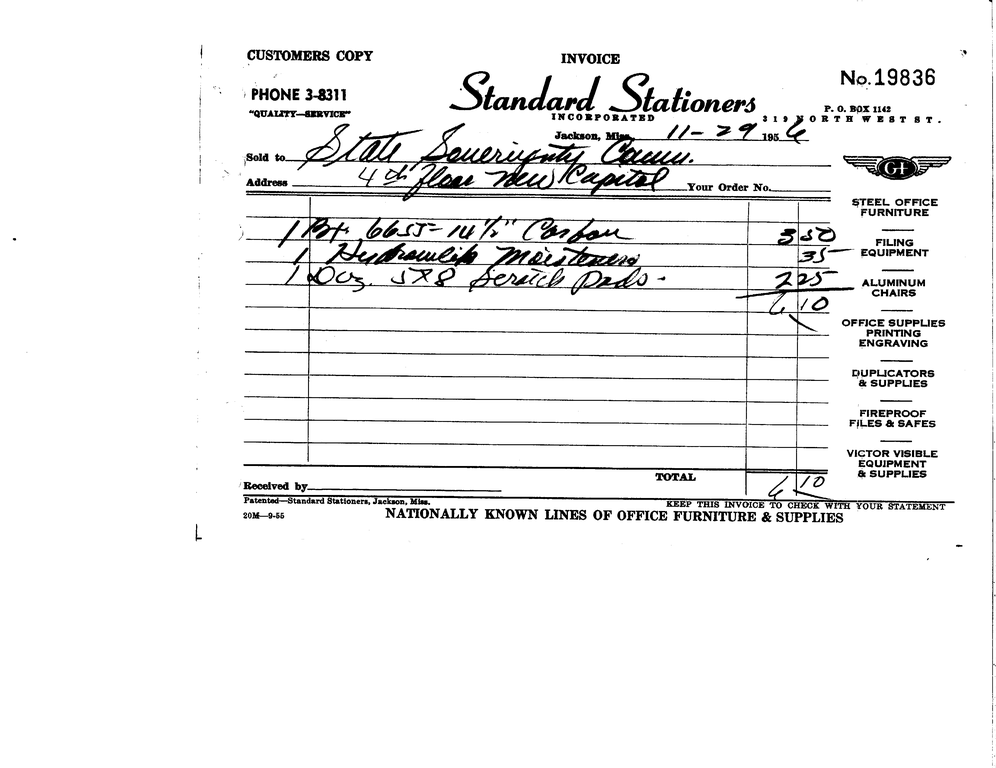 CUSTOMERS COPY
INVOICE
No. 19836
PHONE 3-8311
"QUALITY—SERVICE"
Standard Stationers
INCORPORATED
P. O. BOX 1142
319 NORTH WEST ST.
Jackson, Miss. 11-29 1956
Sold to State Sovereignty Comm.
Address 4th floor New Capitol Your Order No.
1 Bx. 6655- 14 1/2" Carbon 3 50
1 Moisteners 35
1 Doz. 5X8 Scratch Pads - 2 25
6 10
STEEL OFFICE
FURNITURE
FILING
EQUIPMENT
ALUMINUM
CHAIRS
OFFICE SUPPLIES
PRINTING
ENGRAVING
DUPLICATORS
& SUPPLIES
FIREPROOF
FILES & SAFES
VICTOR VISIBLE
EQUIPMENT
& SUPPLIES
TOTAL 6 10
Received by
Patented—Standard Stationers, Jackson, Miss.
KEEP THIS INVOICE TO CHECK WITH YOUR STATEMENT
20M—9-55
NATIONALLY KNOWN LINES OF OFFICE FURNITURE & SUPPLIES